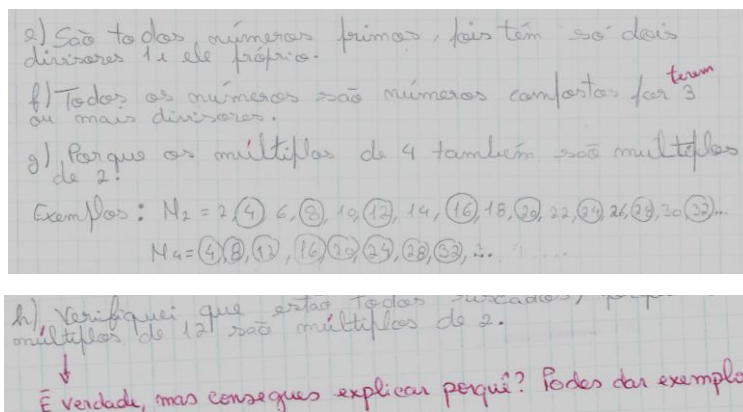 e) São todos números primos, pois têm só dois
divisores 1 e ele próprio.
f) Todos os números são números compostos por terem 3
ou mais divisores.
g) Porque os múltiplos de 4 também são multiplos
de 2.
Exemplos: M2 = 2, 4, 6, 8, 10, 12, 14, 16, 18, 20, 22, 24, 26, 28, 30, 32...
M4 = 4, 8, 12, 16, 20, 24, 28, 32, ...
h) Verifiquei que estão todos
múltiplos de 12 são múltiplos de 2.
É verdade, mas consegues explicar porquê? Podes dar exemplo